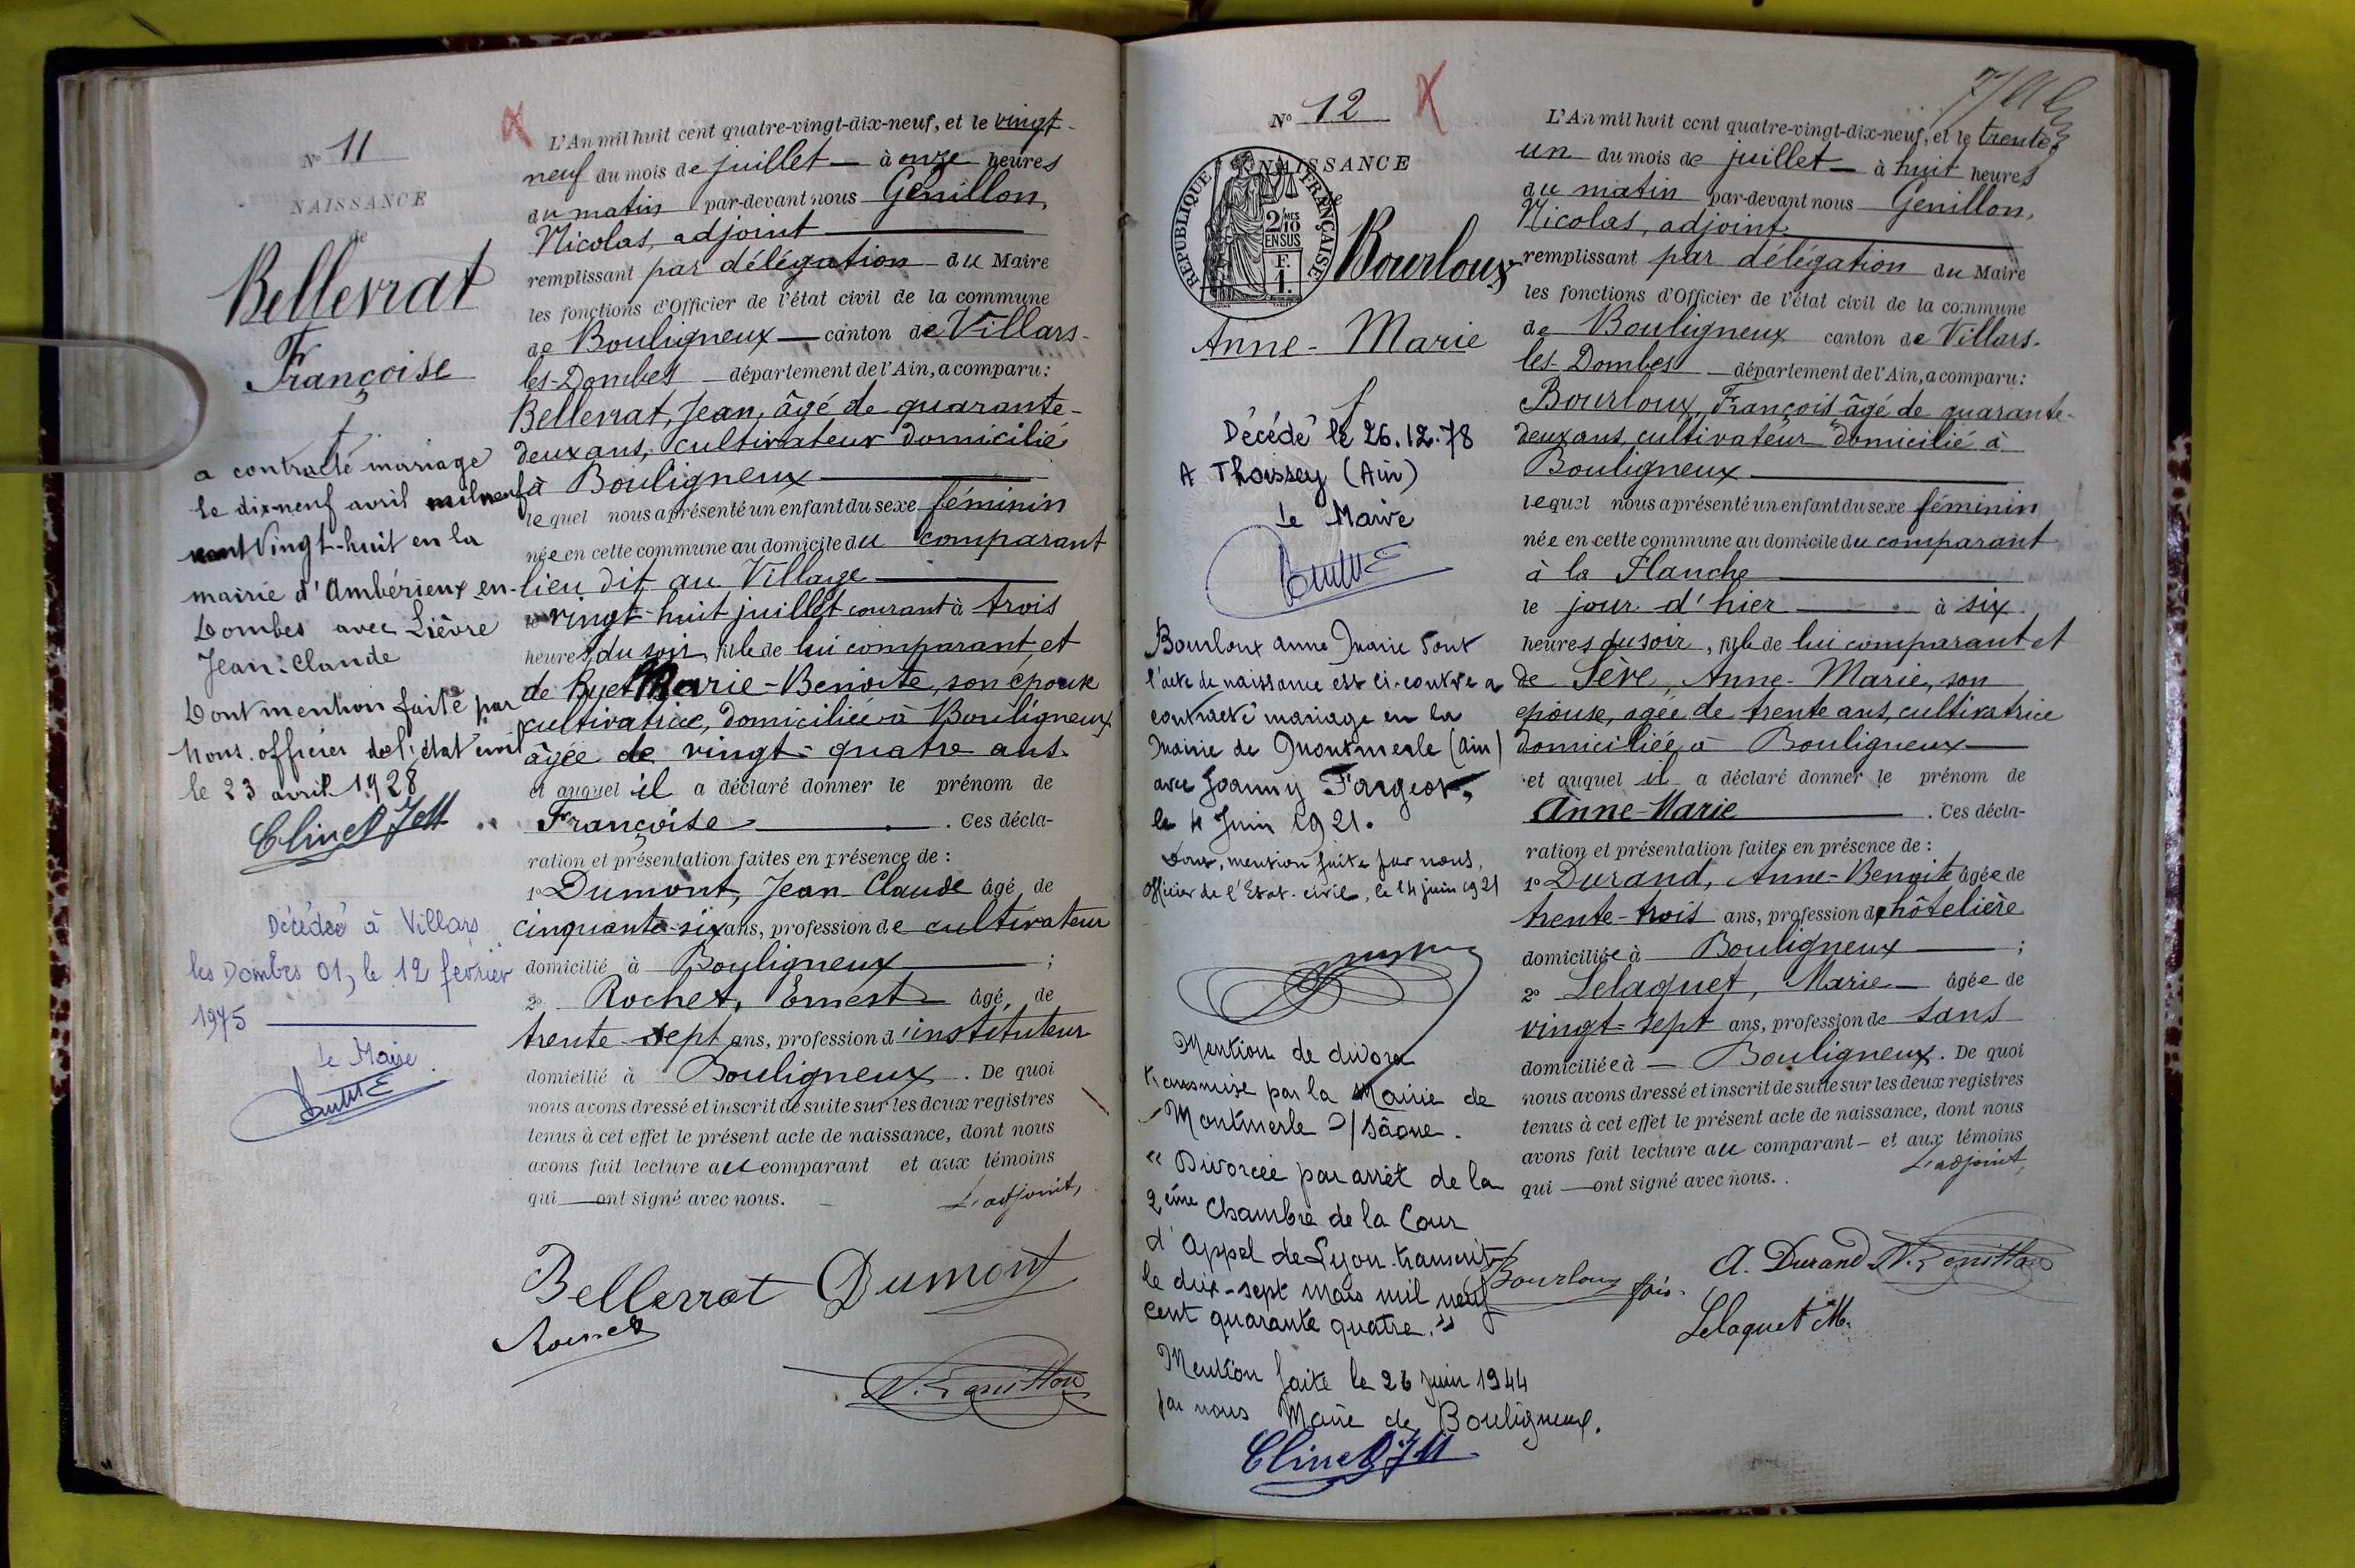 N° 11
NAISSANCE
de
Bellevrat
Françoise
a contracté mariage
le dix-neuf avril mil neuf
cent Vingt-huit en la
mairie d'Ambérieux en-
Dombes avec Lièvre
Jean-Claude
Dont mention faite par
Nous officier de l'état civil
le 23 avril 1928
Décédée à Villars
les Dombes 01, le 12 février
1975
Le Maire
L'An mil huit cent quatre-vingt-dix-neuf, et le vingt-
neuf du mois de juillet — à onze heures
du matin par-devant nous Genillon,
Nicolas, adjoint
remplissant par délégation du Maire
les fonctions d'Officier de l'état civil de la commune
de Bouligneux — canton de Villars-
les-Dombes — département de l'Ain, a comparu :
Bellevrat, Jean, âgé de quarante-
deux ans, cultivateur domicilié
à Bouligneux
lequel nous a présenté un enfant du sexe féminin
née en cette commune au domicile du comparant
lieu dit au Village
le vingt-huit juillet courant à trois
heures du soir, fille de lui comparant, et
de Ryet Marie-Benoite, son épouse
cultivatrice, domiciliée à Bouligneux
âgée de vingt-quatre ans.
et auquel il a déclaré donner le prénom de
Françoise . Ces décla-
ration et présentation faites en présence de :
1° Dumont, Jean-Claude âgé de
cinquante-six ans, profession de cultivateur
domicilié à Bouligneux ;
2° Rochet, Ernest âgé de
trente-sept ans, profession d'instituteur
domicilié à Bouligneux. De quoi
nous avons dressé et inscrit de suite sur les deux registres
tenus à cet effet le présent acte de naissance, dont nous
avons fait lecture au comparant et aux témoins
qui — ont signé avec nous.
L'adjoint,
Bellevrat Dumont
Rochet
N. Genillon
N° 12
NAISSANCE
de
RÉPUBLIQUE FRANÇAISE
2/10 MES
EN SUS
F.
1.
Bourloux
Anne-Marie
Décédé le 26.12.78
A Thoissey (Ain)
Le Maire
Bourloux Anne Marie dont
l'acte de naissance est ci-contre a
contracté mariage en la
Mairie de Montmerle (Ain)
avec Joanny Fargeot,
le 4 Juin 1921.
Dont, mention faite par nous,
Officier de l'Etat-civil, le 14 juin 1921
Mention de divorce
transmise par la Mairie de
Montmerle s/ Sâone.
"Divorcée par arrêt de la
2ème Chambre de la Cour
d'Appel de Lyon transcrit
le dix-sept mars mil neuf
cent quarante quatre."
Mention faite le 26 juin 1944
par nous Maire de Bouligneux.
L'An mil huit cent quatre-vingt-dix-neuf, et le trente-
un du mois de juillet — à huit heures
du matin par-devant nous Genillon,
Nicolas, adjoint
remplissant par délégation du Maire
les fonctions d'Officier de l'état civil de la commune
de Bouligneux canton de Villars-
les-Dombes — département de l'Ain, a comparu :
Bourloux, François âgé de quarante-
deux ans, cultivateur domicilié à
Bouligneux
lequel nous a présenté un enfant du sexe féminin
née en cette commune au domicile du comparant
à la Planche
le jour d'hier à six
heures du soir, fille de lui comparant et
de Sève, Anne-Marie, son
épouse, agée de trente ans, cultivatrice
domiciliée à Bouligneux
et auquel il a déclaré donner le prénom de
Anne-Marie . Ces décla-
ration et présentation faites en présence de :
1° Durand, Anne-Benoite âgée de
trente-trois ans, profession d'hôtelière
domiciliée à Bouligneux ;
2° Lelaquet, Marie — âgée de
vingt-sept ans, profession de sans
domiciliée à — Bouligneux. De quoi
nous avons dressé et inscrit de suite sur les deux registres
tenus à cet effet le présent acte de naissance, dont nous
avons fait lecture au comparant — et aux témoins
qui — ont signé avec nous.
L'adjoint,
Bourloux fois. A. Durand N. Genillon
Lelaquet M.